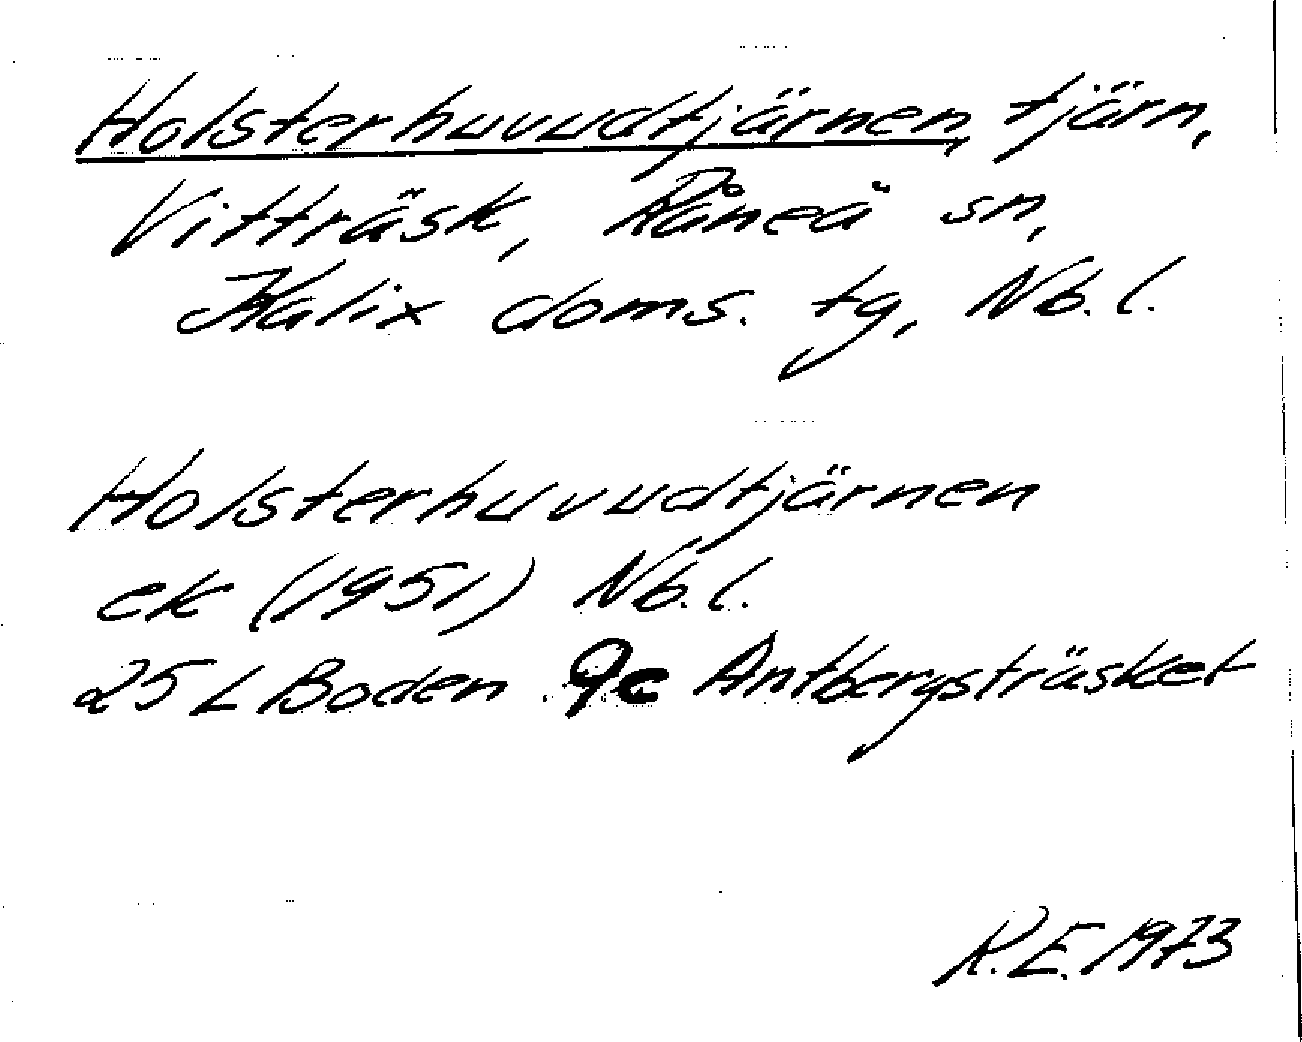 Holsterhuvudtjärnen, tjärn,
Vitträsk, Råneå sn,
Kalix doms. tg, Nb. l.
Holsterhuvudtjärnen
ek (1951) Nb. l.
25 L Boden 9c Antbergsträsket
R.E. 1973